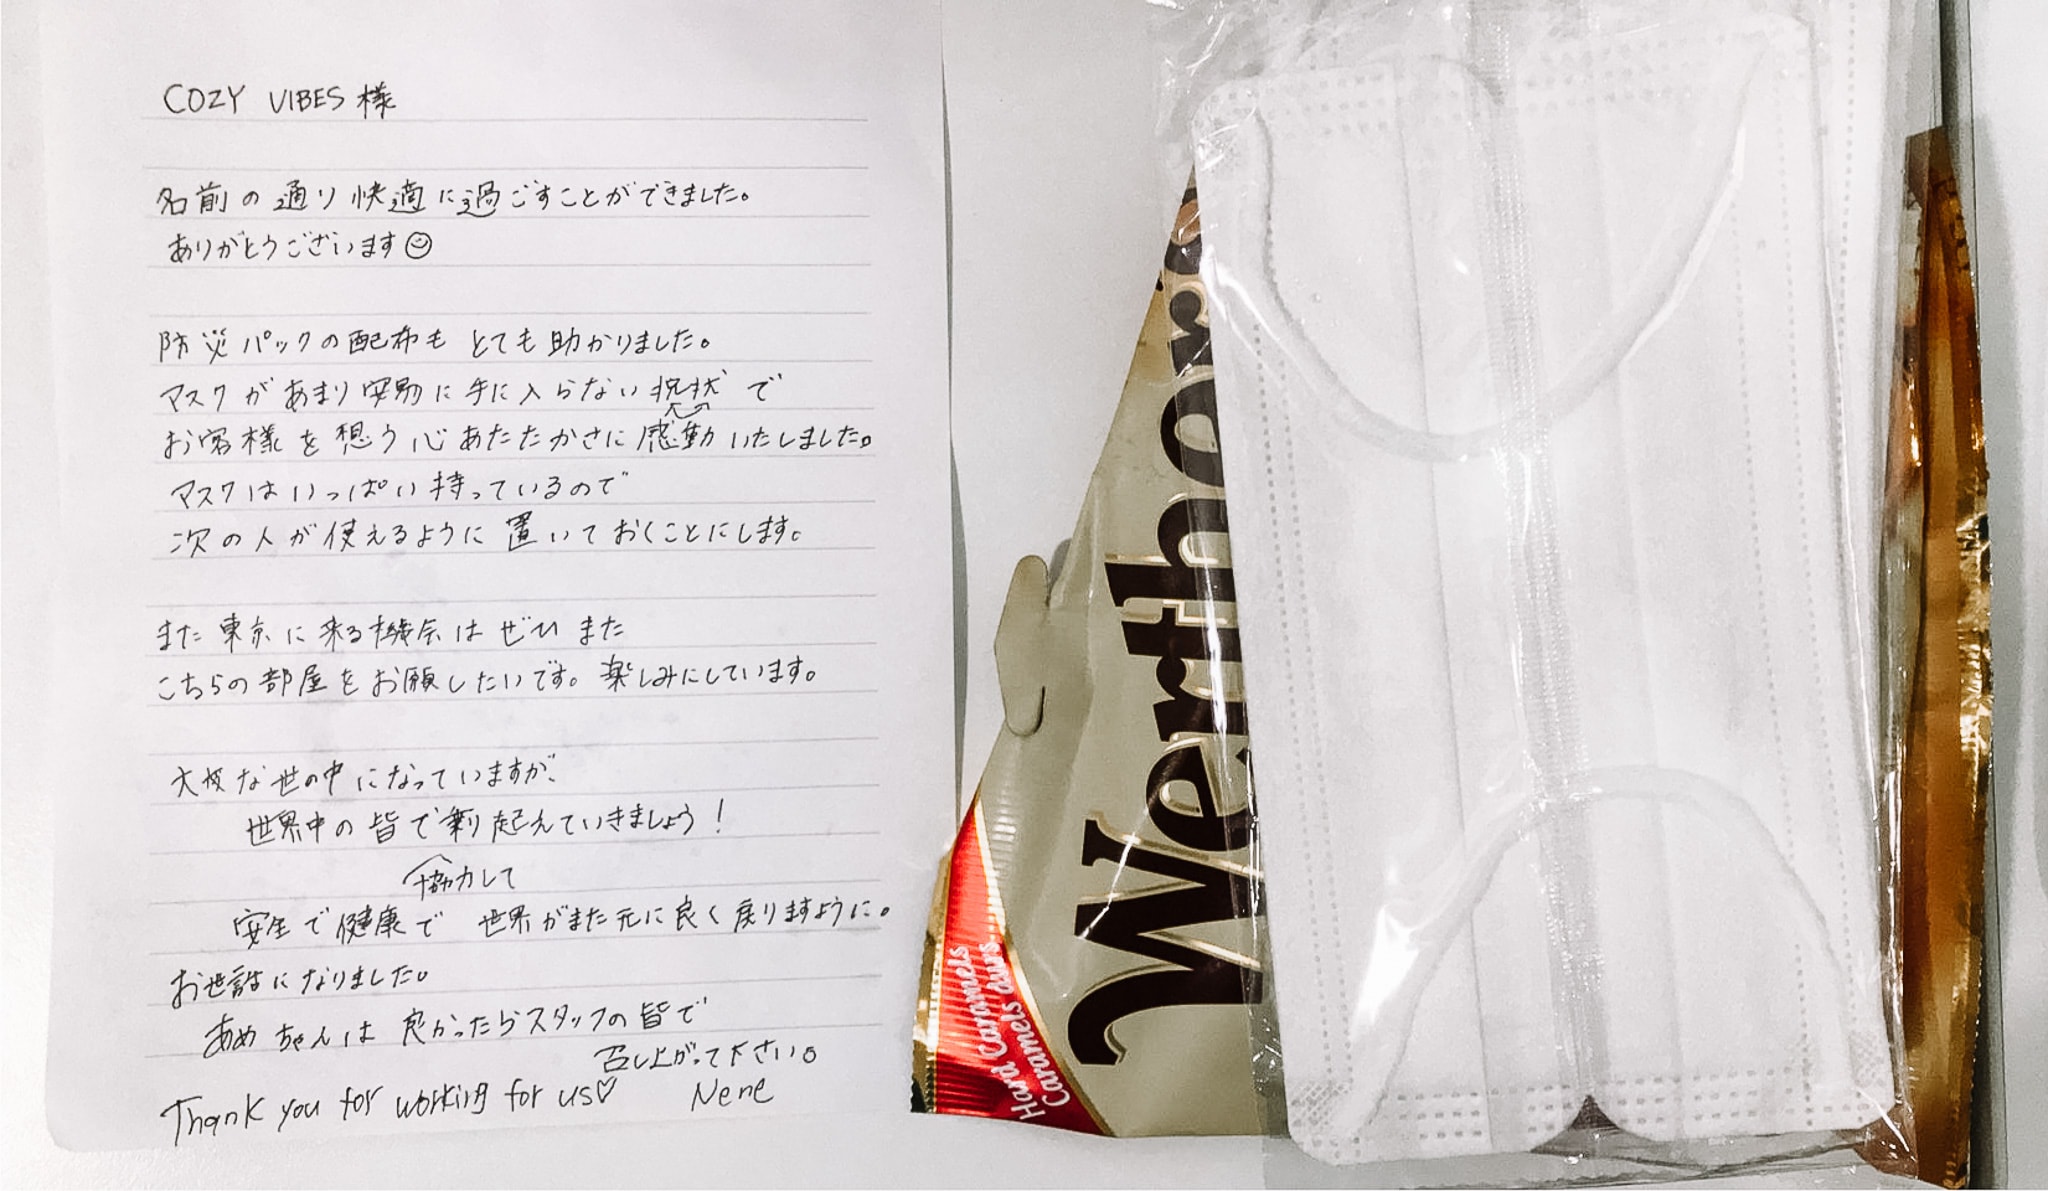 COZY VIBES 様
名前の通り快適に過ごすことができました。
ありがとうございます☺
防災パックの配布もとても助かりました。
マスクがあまり容易に手に入らない状況で
お客様を想う心あたたかさに感動いたしました。
マスクはいっぱい持っているので
次の人が使えるように置いておくことにします。
また東京に来る機会はぜひまた
こちらの部屋をお願したいです。楽しみにしています。
大変な世の中になっていますが、
世界中の皆で乗り越えていきましょう!
協力して
安全で健康で 世界がまた元に良く戻りますように。
お世話になりました。
あめちゃんは良かったらスタッフの皆で
召し上がって下さい。
Thank you for working for us♡ Nene
Werther
Hard Caramels
Caramels durs